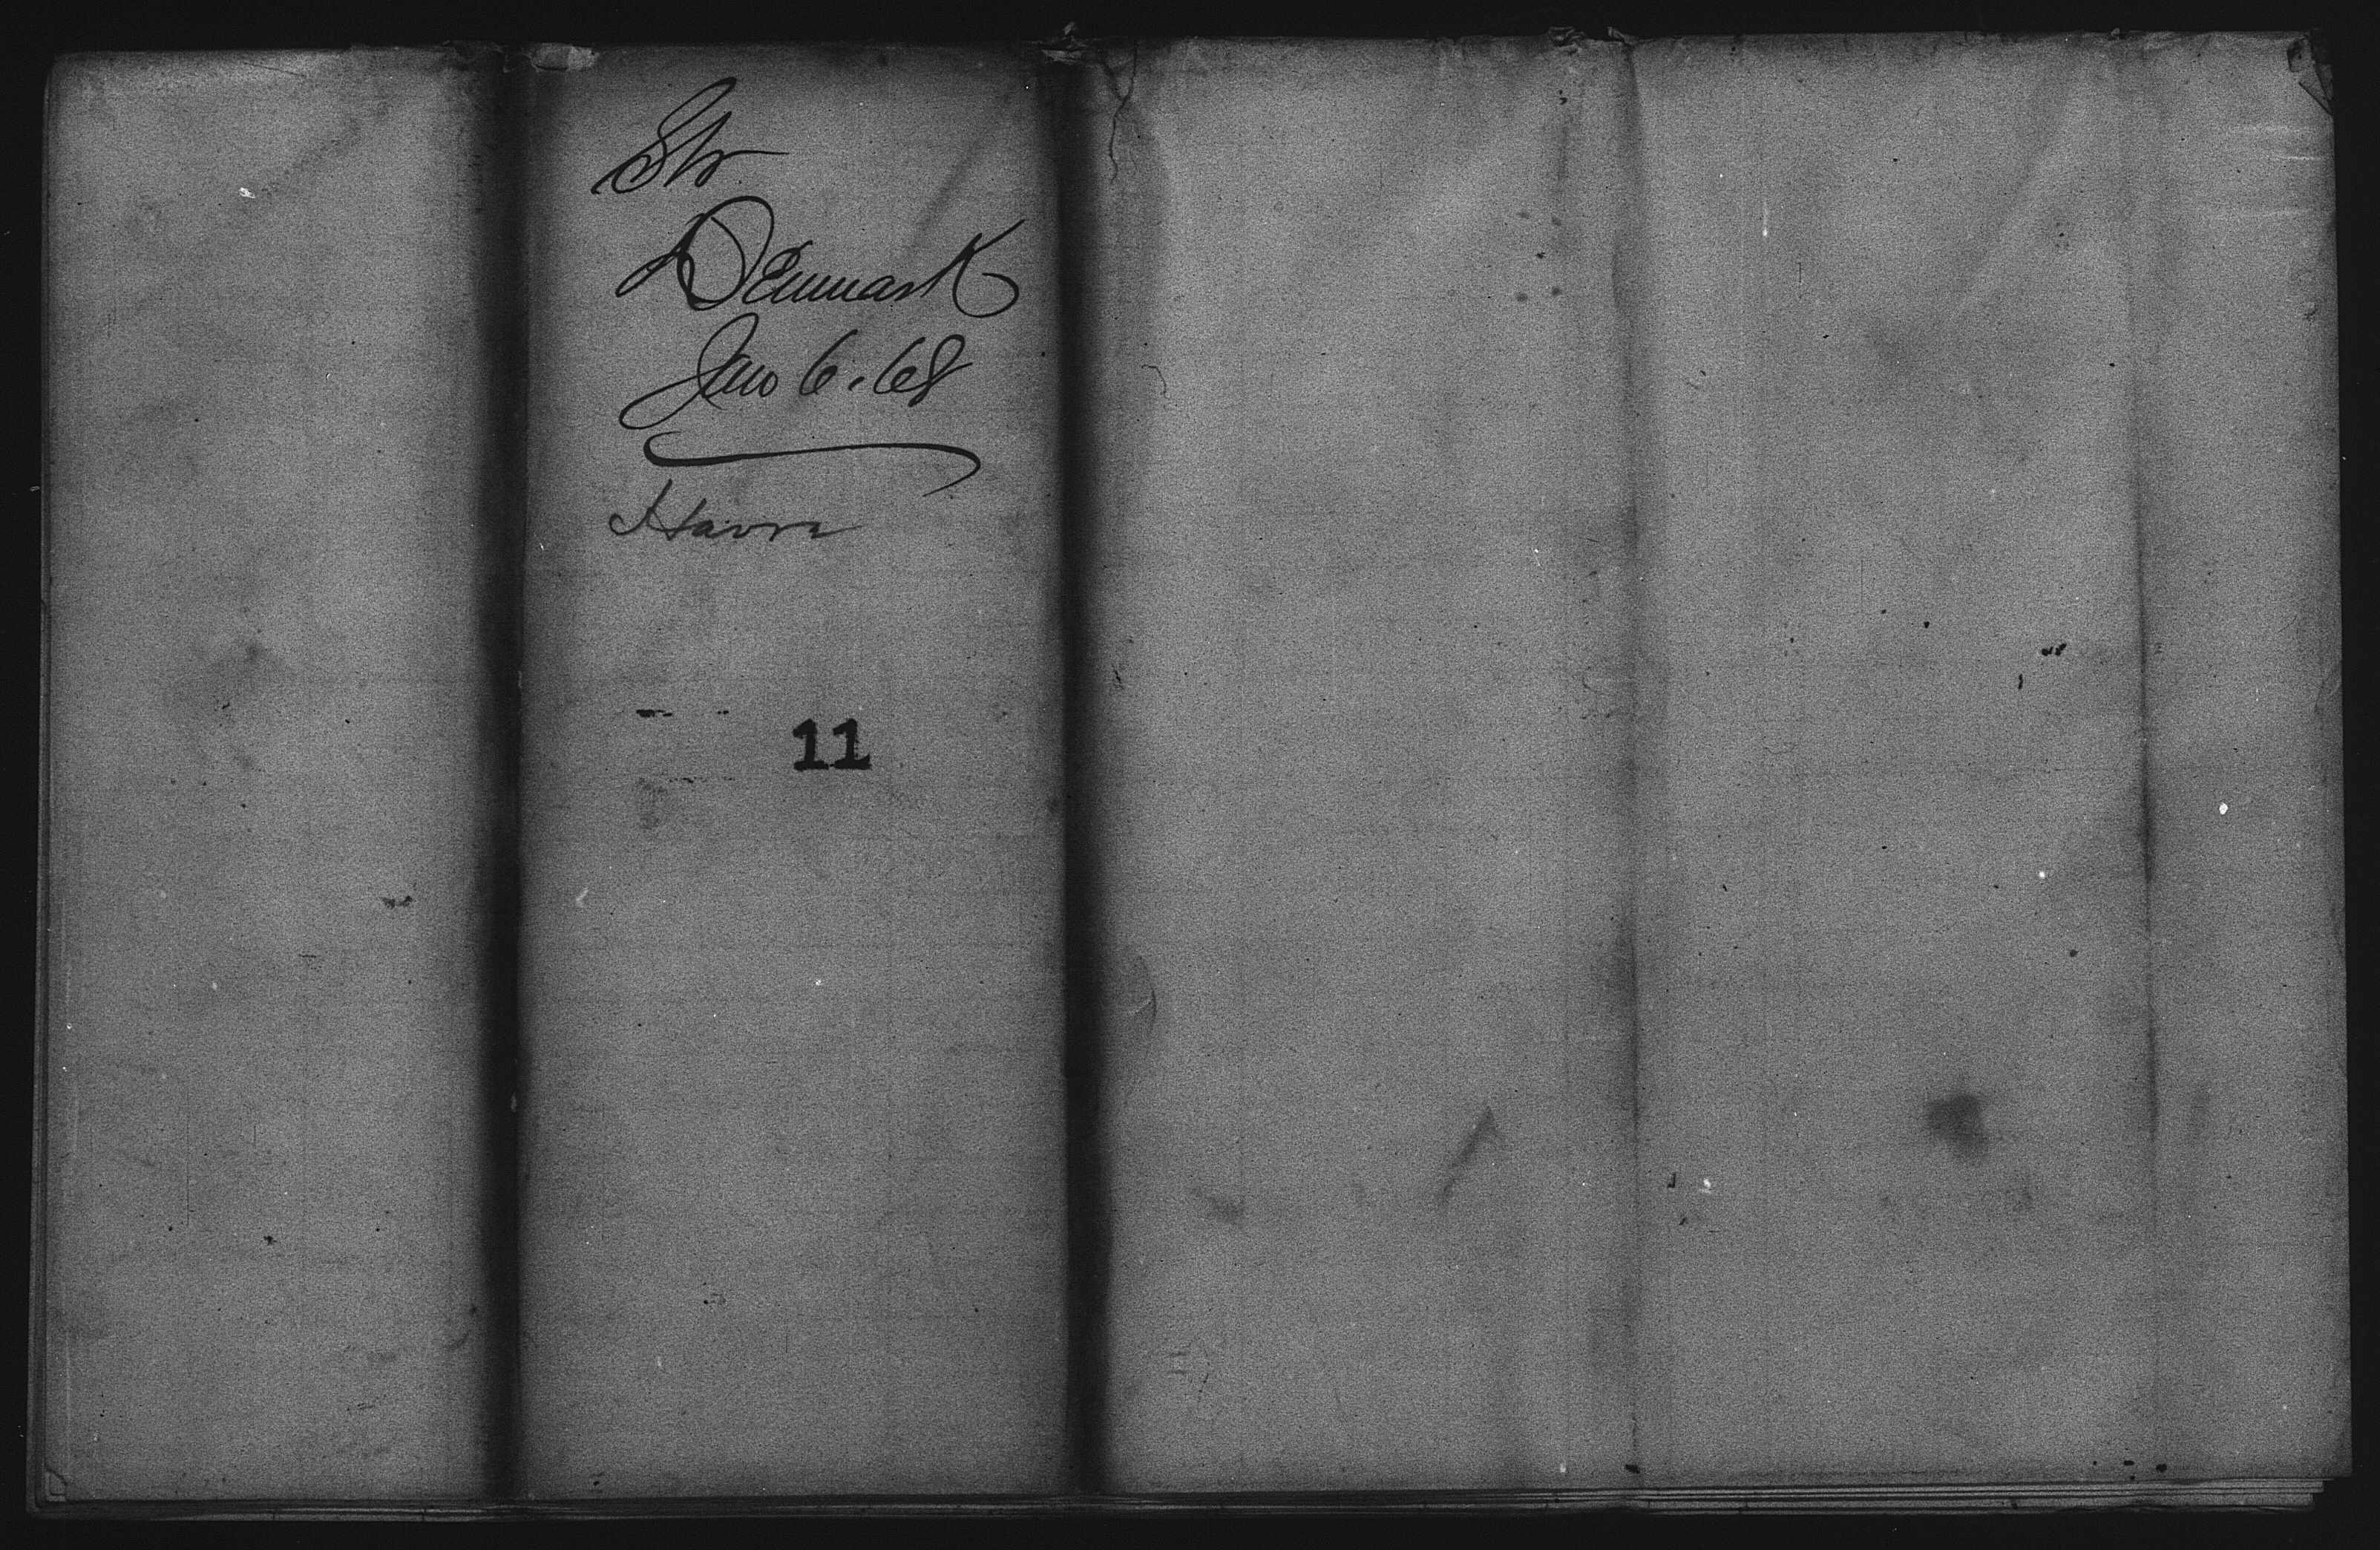 Str
Denmark
Jan 6. 68
Havre
11